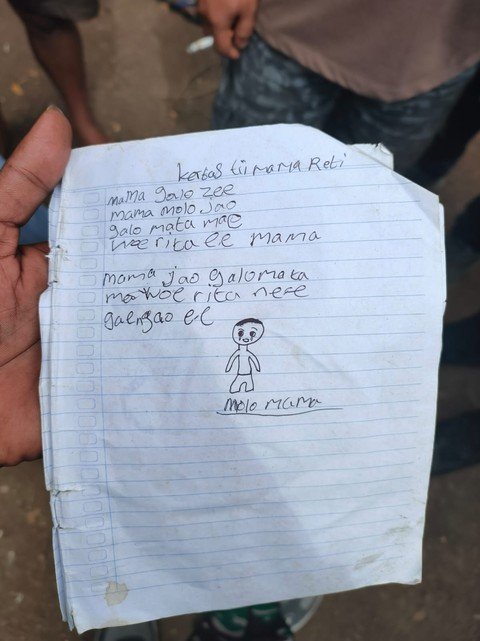 kertas tii mama Reti
mama galo zee
mama molo Jao
galo mata mae
woe rita ee mama
mama jao galo mata
mae woe rita nee
gae ngao ee
molo mama